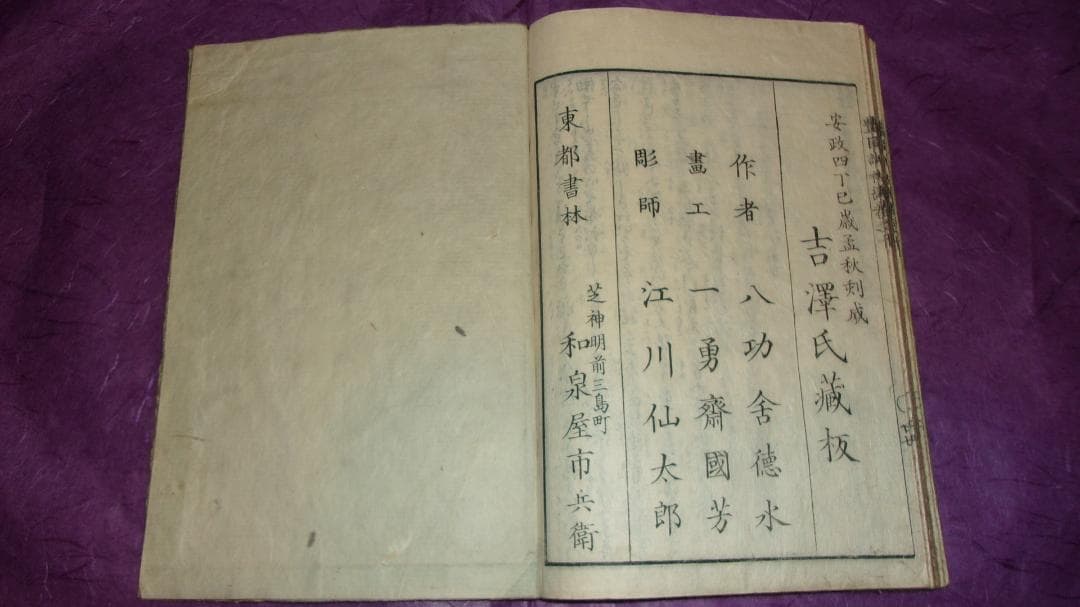 安政四丁巳歳孟秋刻成
吉澤氏藏板
作者　八功舍德水
畫工　一勇齋國芳
彫師　江川仙太郎
東都書林　芝神明前三島町
和泉屋市兵衛